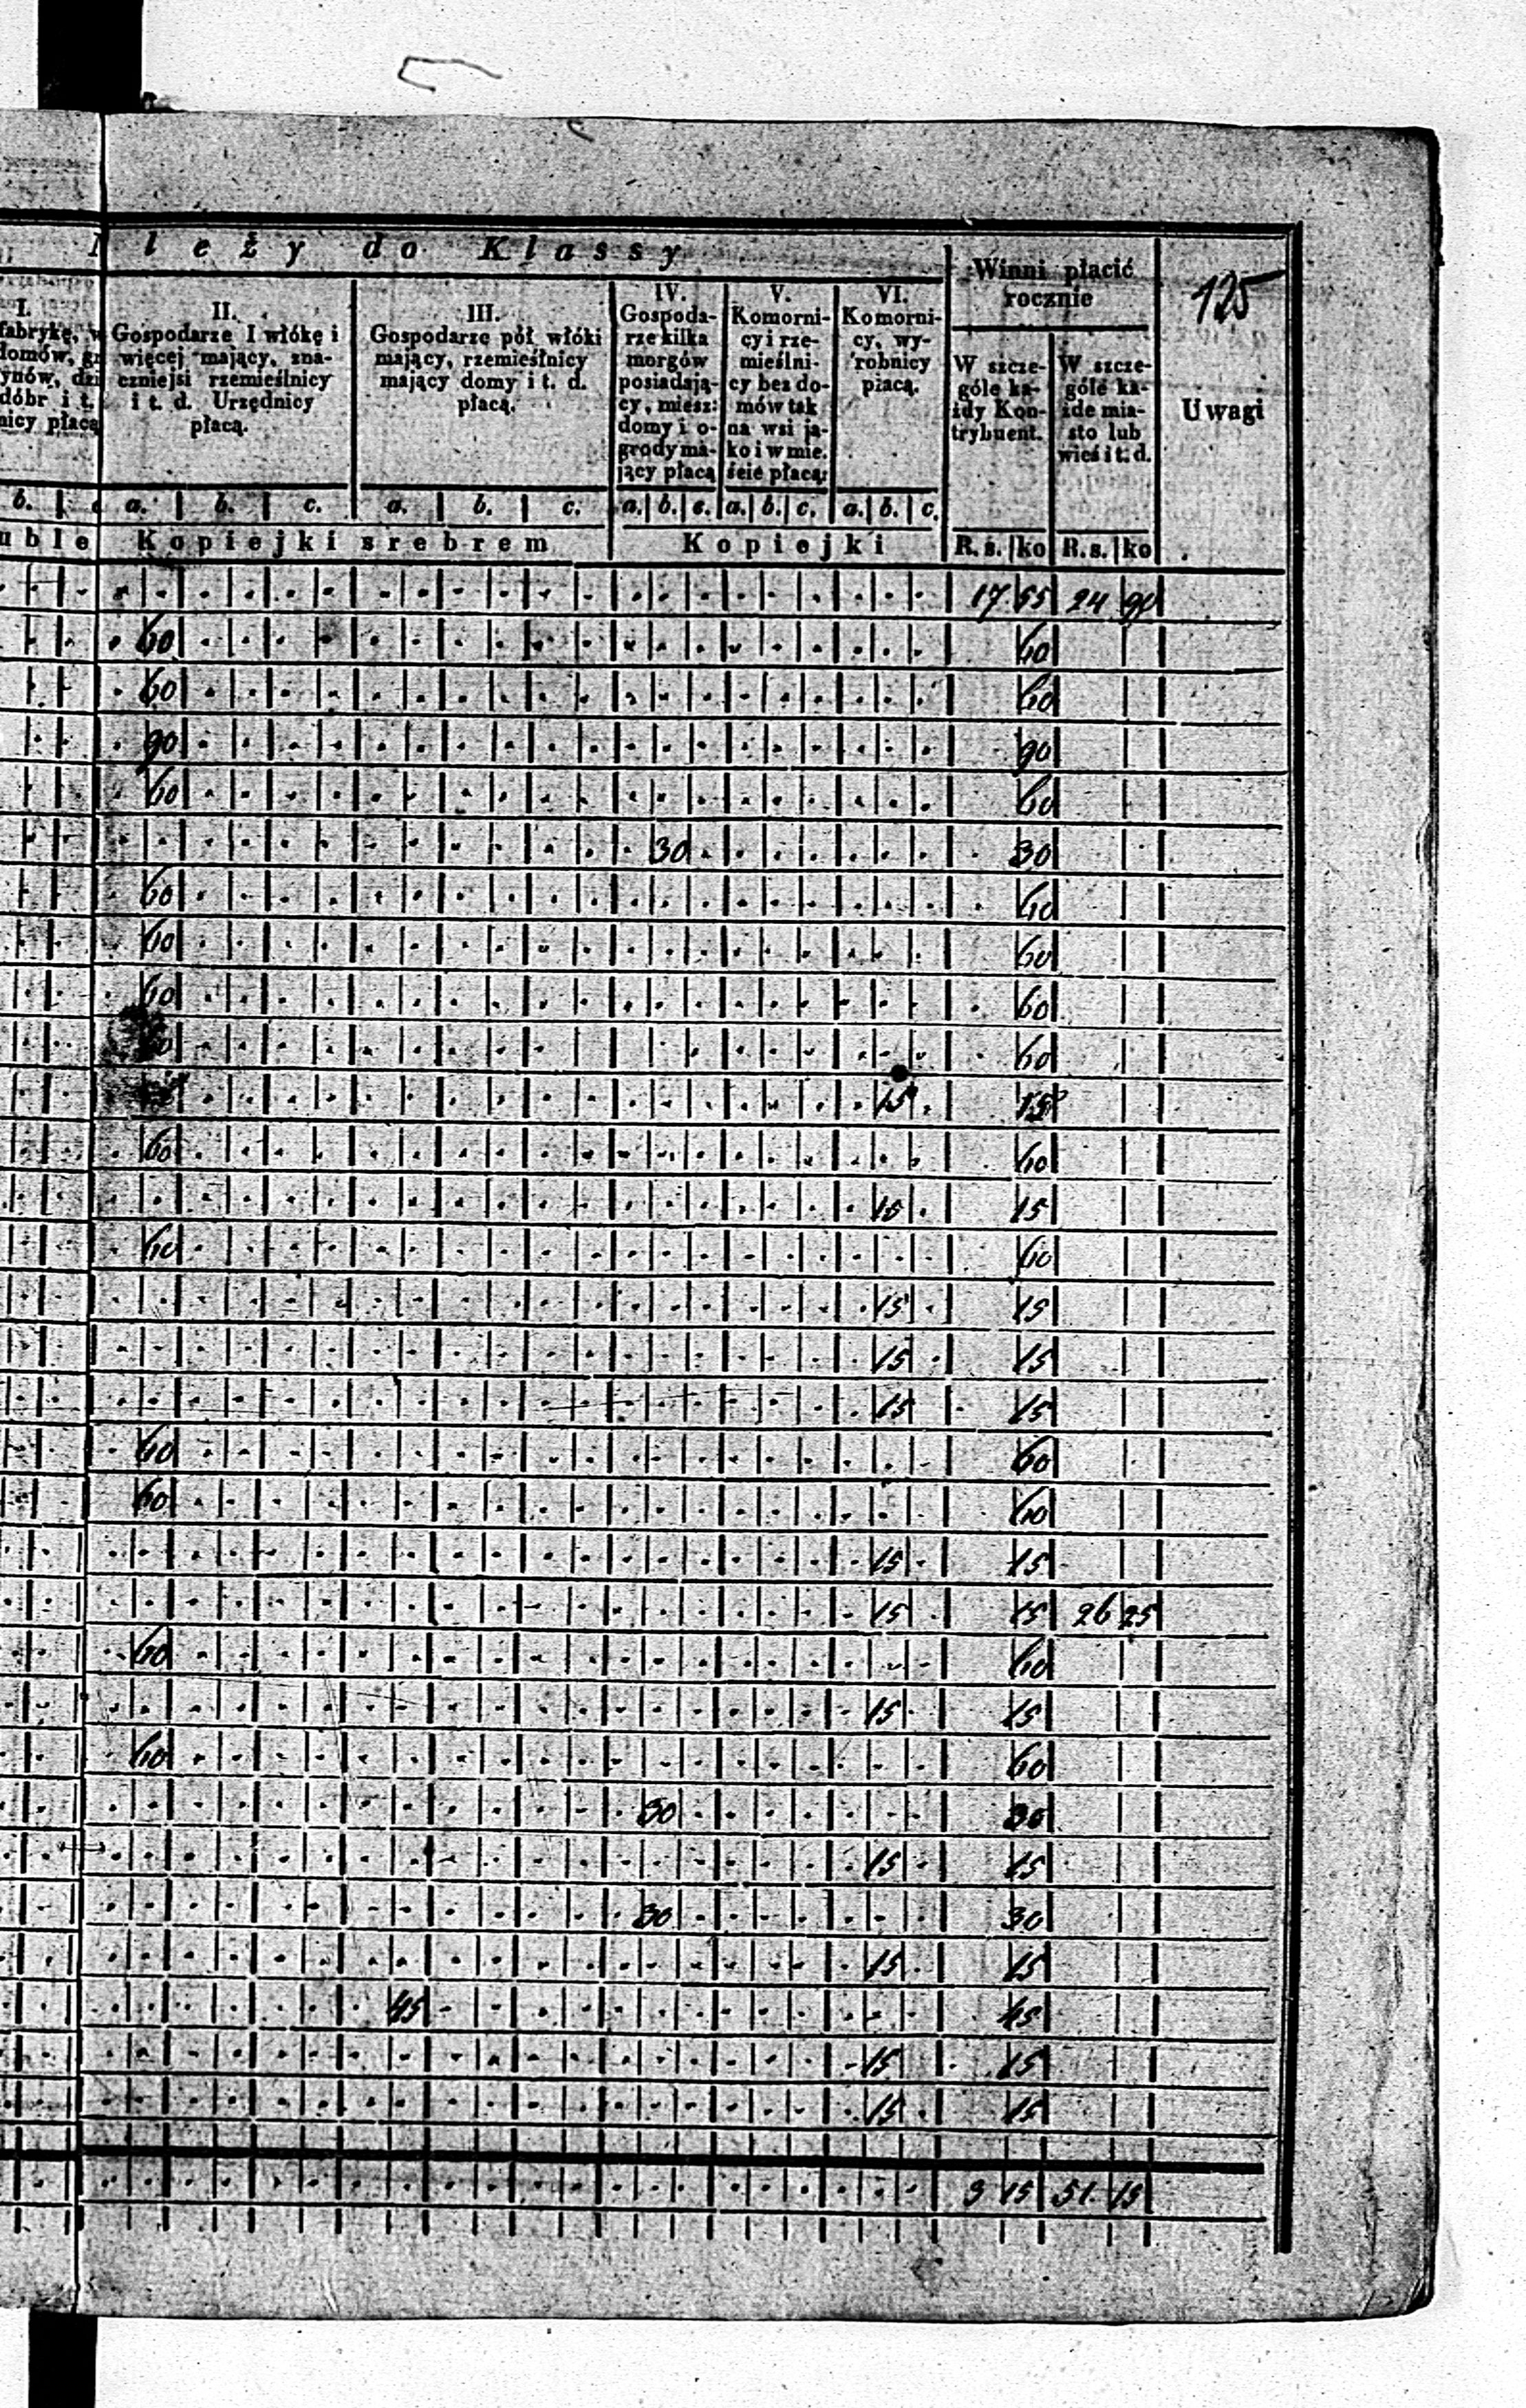 leży do Klassy
Winni płacić
rocznie
125
Uwagi
I.
fabrykę, w
domów, gr
ynów, dzi
dóbr i t.
nicy płacą
II.
Gospodarze I włókę i
więcej mający, zna-
czniejsi rzemieślnicy
i t. d. Urzędnicy
płacą.
III.
Gospodarze pół włóki
mający, rzemieślnicy
mający domy i t. d.
płacą.
IV.
Gospoda-
rze kilka
morgów
posiadają-
cy, miesz:
domy i o-
grody ma-
jący płacą
V.
Komorni-
cy i rze-
mieślni-
cy bez do-
mów tak
na wsi ja-
ko i w mie.
ście płacą:
VI.
Komorni-
cy, wy-
robnicy
płacą.
W szcze-
góle ka-
żdy Kon-
trybuent.
W szcze-
góle ka-
żde mia-
sto lub
wieś i t. d.
b. a. b. c. a. b. c. a. b. c. a. b. c. a. b. c.
uble Kopiejki srebrem Kopiejki R. s. ko R. s. ko
17 55 24 90
60 60
60 60
90 90
60 60
30 30
60 60
60 60
60 60
60 60
15 15
60 60
15 15
60 60
15 15
15 15
15 15
60 60
60 60
15 15
15 15 26 25
60 60
15 15
60 60
30 30
15 15
30 30
15 15
45 45
15 15
15 15
3 15 51 15